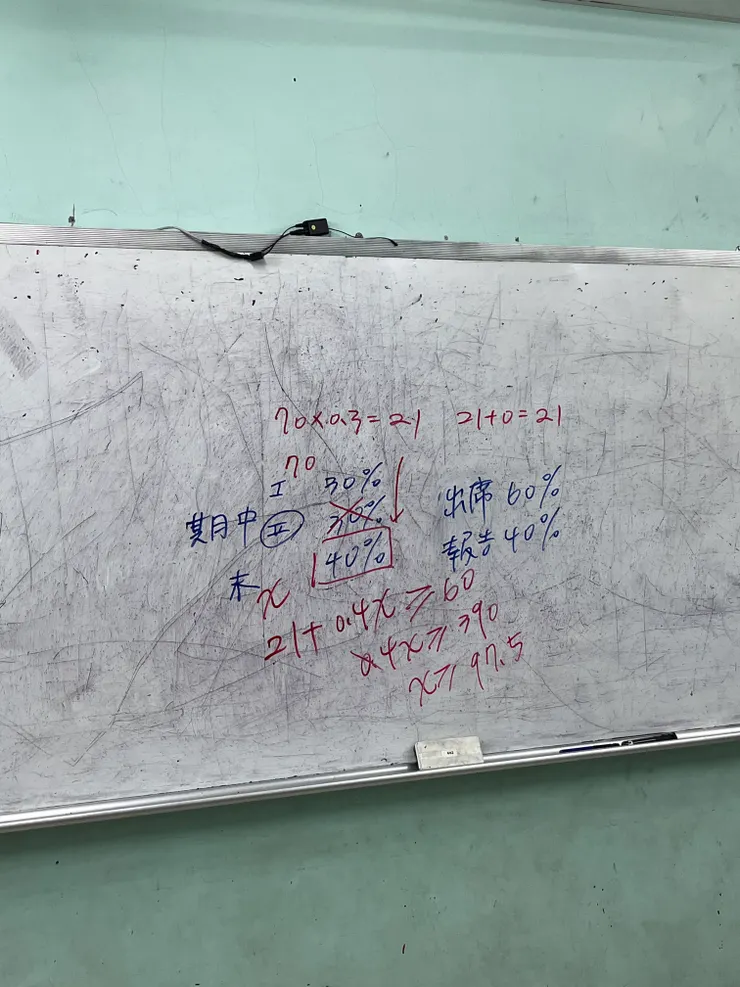 70×0.3=21 21+0=21
70
I 30%
期中 II 30%
出席 60%
40%
報告 40%
末 x
21+0.4x≥60
0.4x≥390
x≥97.5